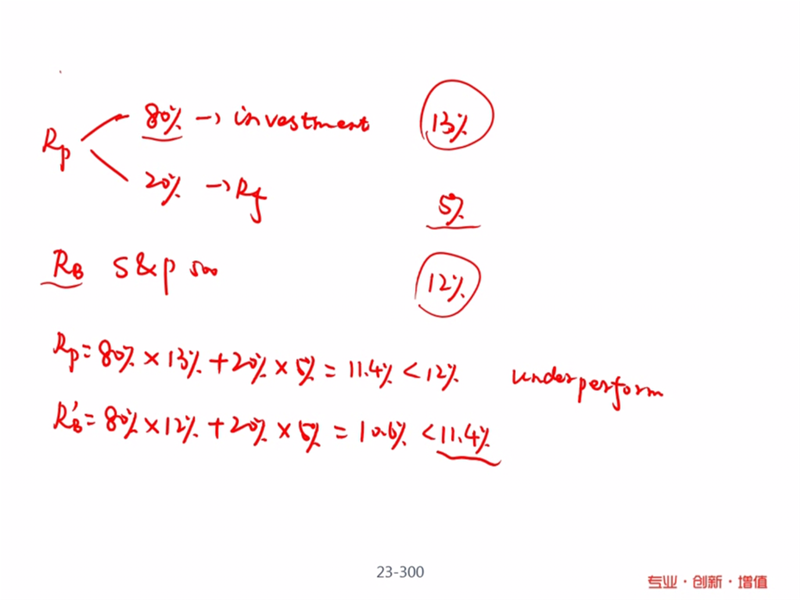 Rp
80% → investment 13%
20% → Rf 5%
RB S&P 500 12%
Rp = 80% × 13% + 20% × 5% = 11.4% < 12% underperform
R'B = 80% × 12% + 20% × 5% = 10.6% < 11.4%
23-300
专业·创新·增值